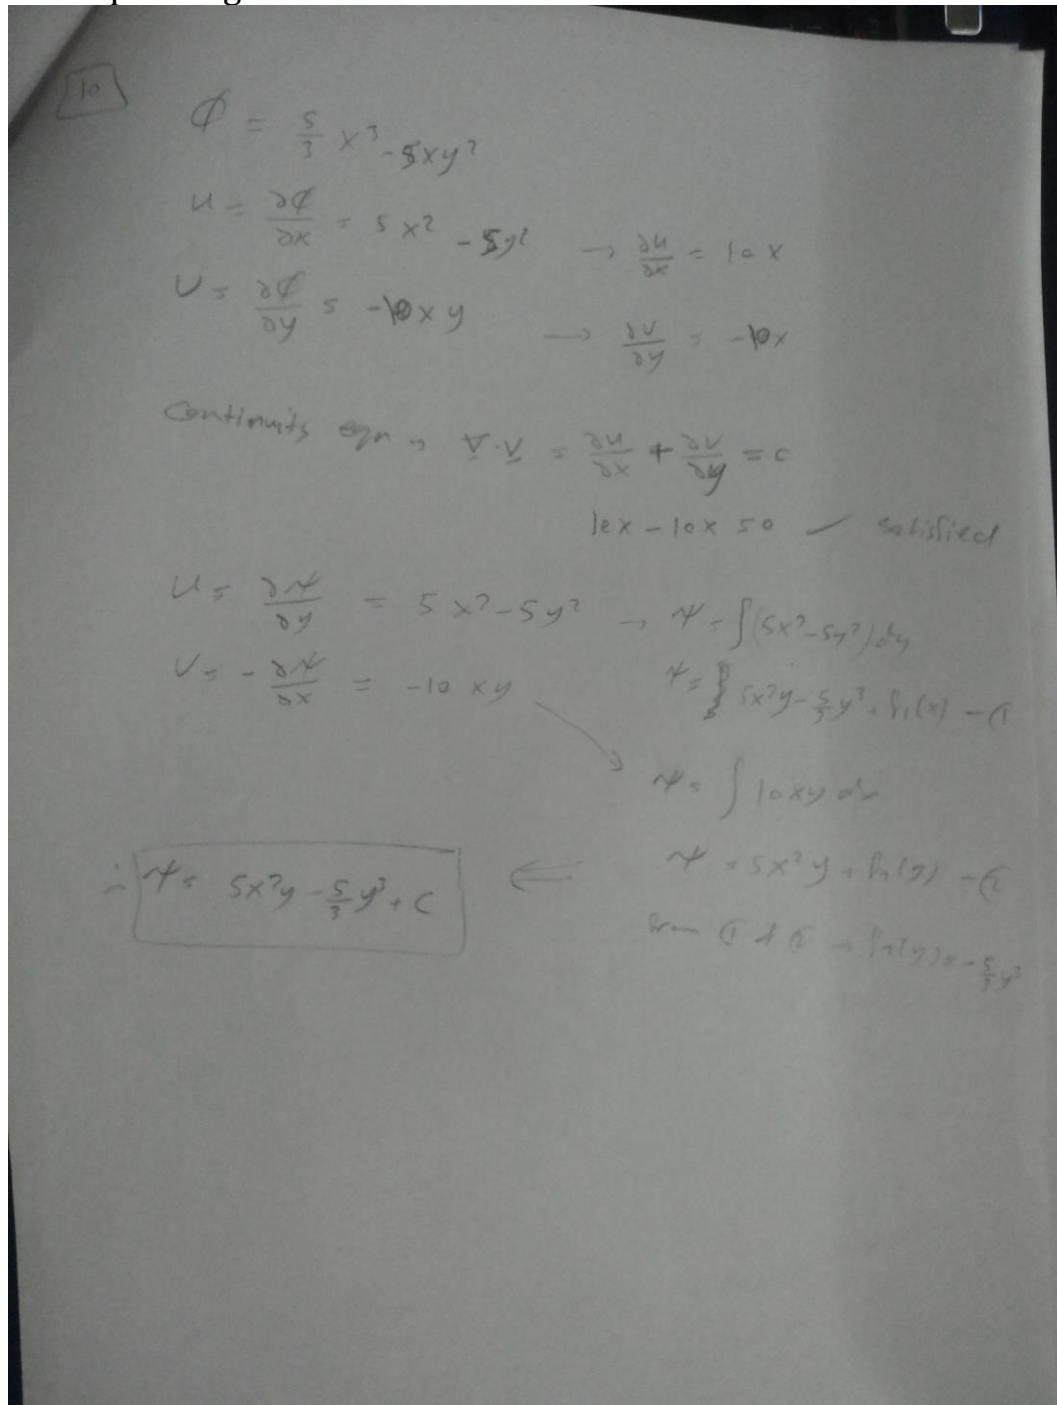 10
φ = 5/3 x³ - 5xy²
u = ∂φ/∂x = 5x² - 5y² → ∂u/∂x = 10x
v = ∂φ/∂y = -10xy → ∂v/∂y = -10x
Continuity eqn → ∇·V = ∂u/∂x + ∂v/∂y = 0
10x - 10x = 0 ✓ satisfied
u = ∂ψ/∂y = 5x² - 5y² → ψ = ∫(5x² - 5y²)dy
v = -∂ψ/∂x = -10xy
ψ = 5x²y - 5/3 y³ + f₁(x) - ①
ψ = ∫ 10xy dx
ψ = 5x²y + f₂(y) - ②
from ① & ② → f₂(y) = -5/3 y³
∴ ψ = 5x²y - 5/3 y³ + C ⇐